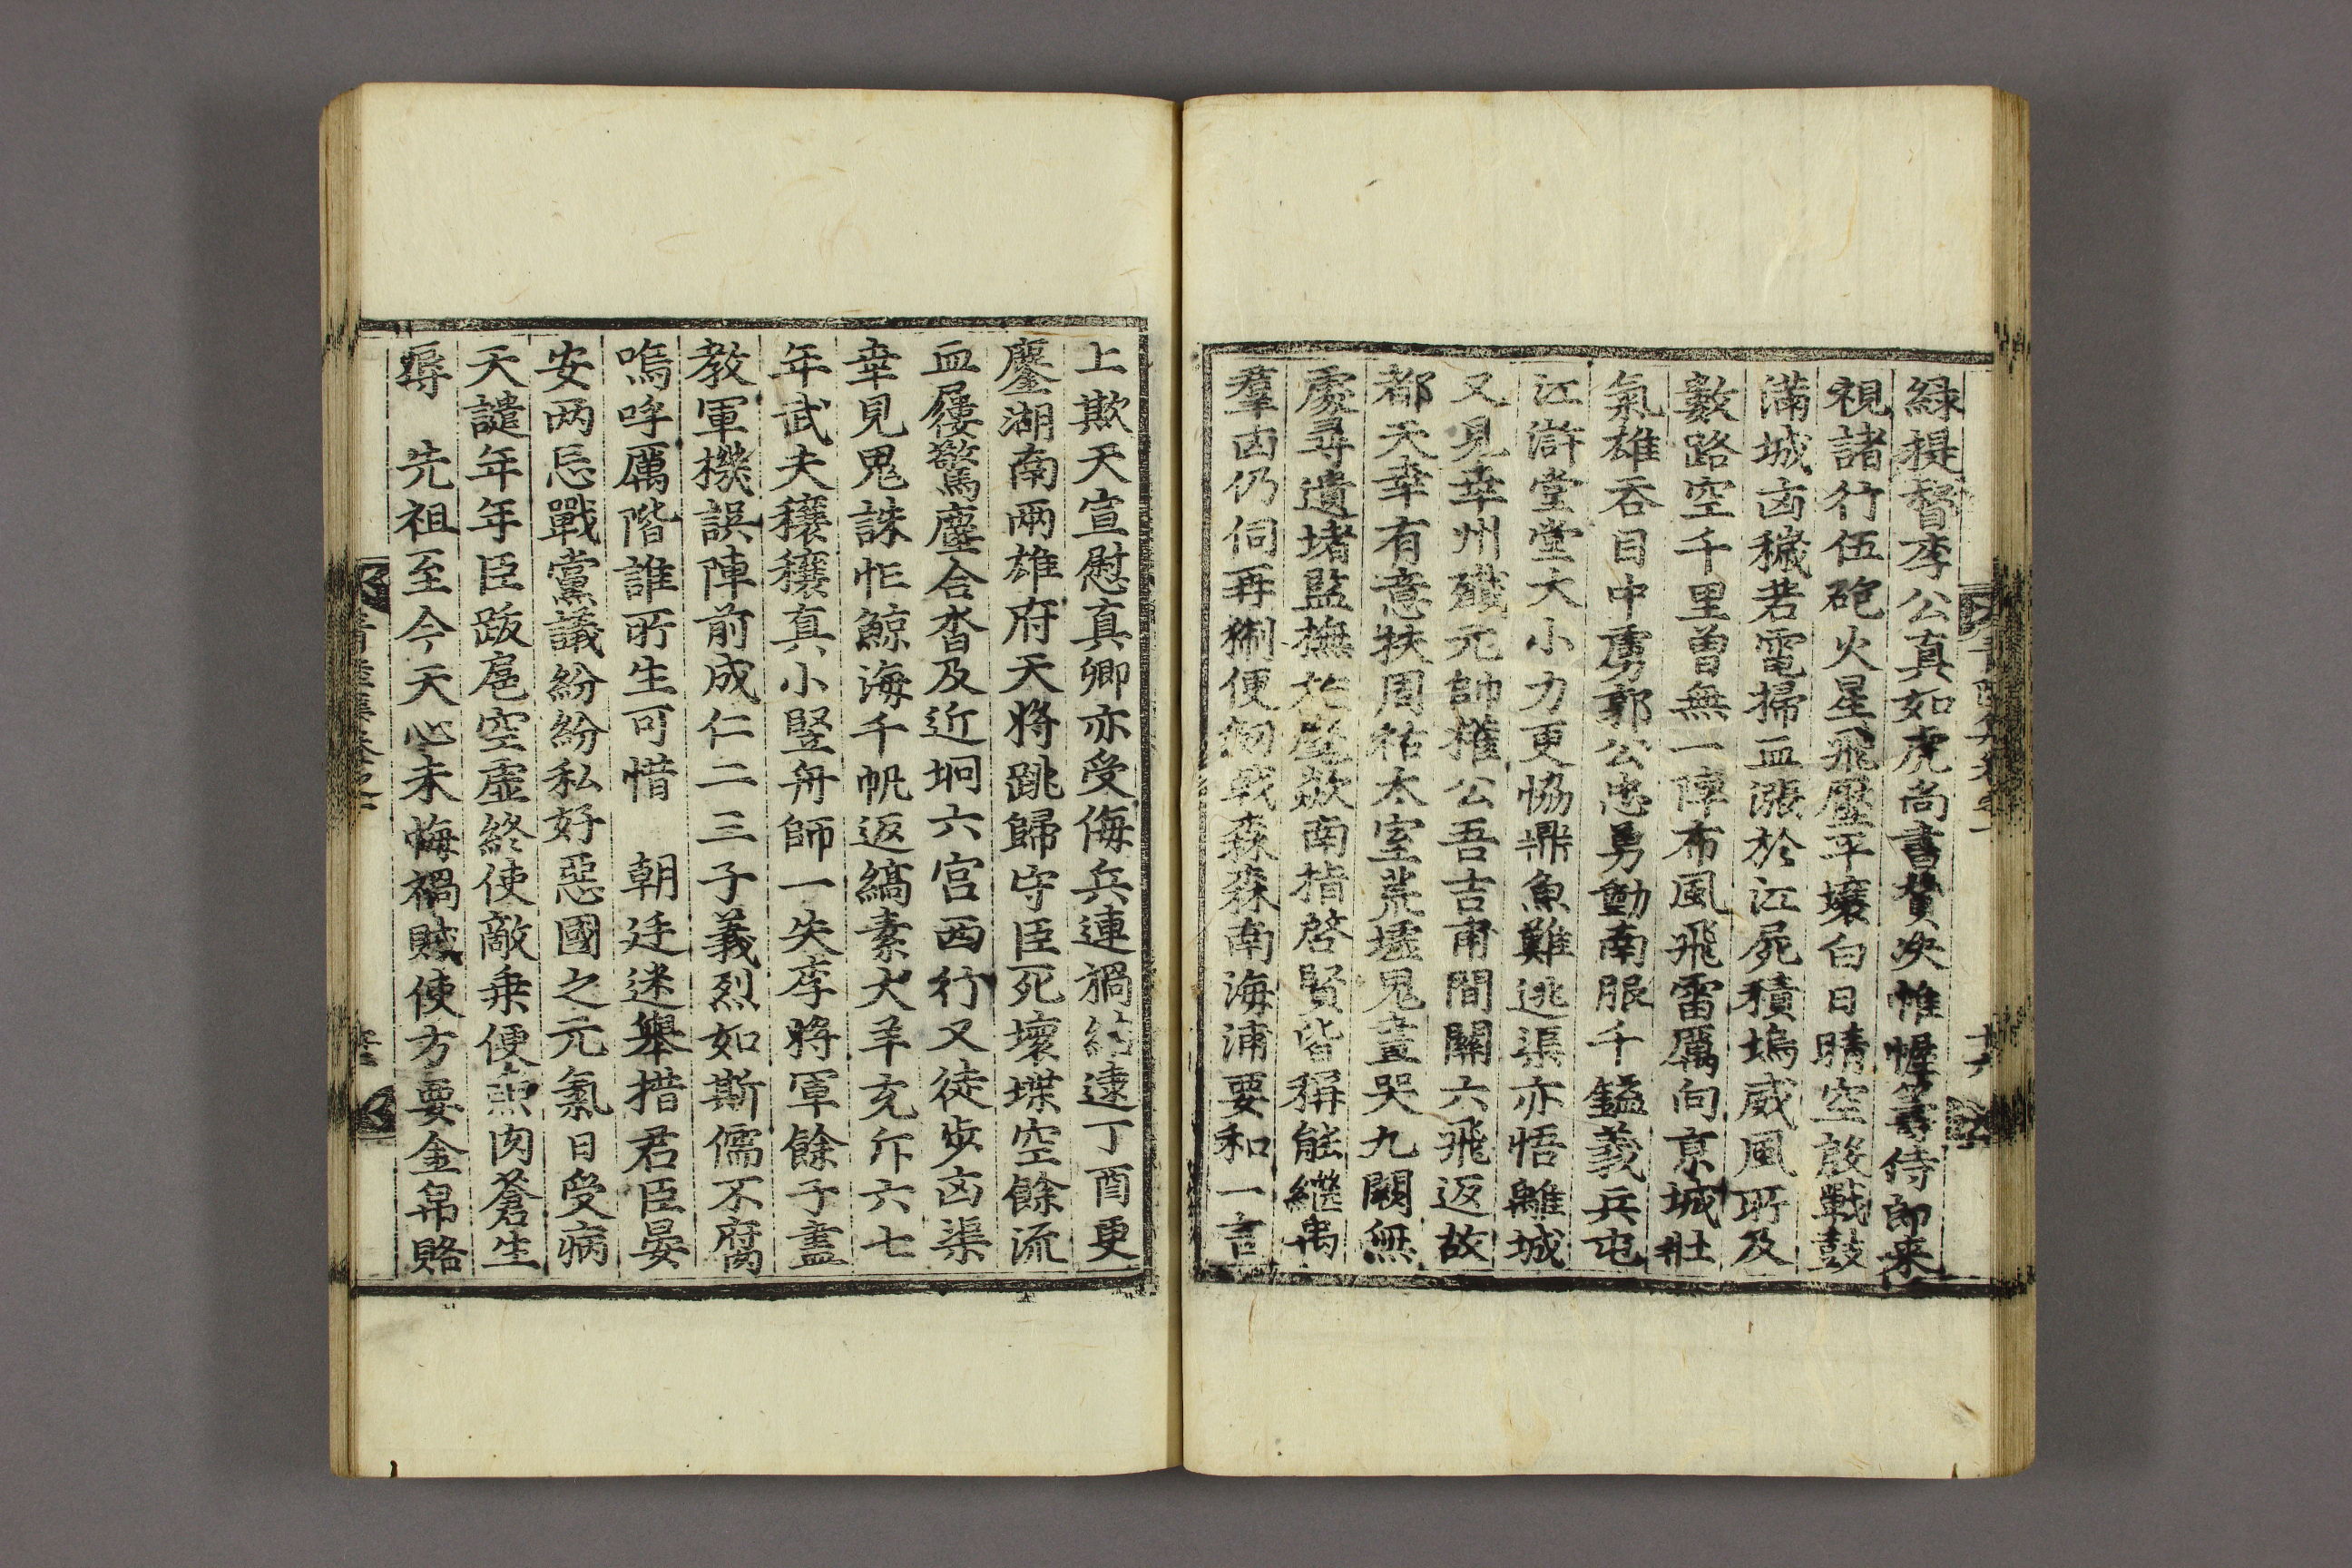 綠提督李公真如虎尚書賛决帷幄籌侍郎来
視諸行伍砲火星飛壓平壤白日晴空殷戰鼓
滿城凶穢若電掃血漲於江屍積塢威風所及
數路空千里曽無一陣布風飛雷厲向亰城壯
氣雄吞目中虜郭公忠勇動南服千鎰義兵屯
江滸堂堂大小力更恊鼎魚難逃渠亦悟離城
又見幸州殱元帥權公吾吉甫間關六飛返故
都天幸有意扶周祐太室荒墟鬼晝哭九闕無
處尋遺堵監撫於歘南指啓賢皆稱能繼禹
羣凶仍伺再猘便戰森森南海浦要和一言
上欺天宣慰真卿亦受侮兵連禍結逺丁酉更
鏖湖南兩雄府天將跳歸守臣死壞堞空餘流
血屨驚塵合沓及近坰六宫西行又徒步凶渠
幸見鬼誅怇鯨海千帆返縞素犬羊充斥六七
年武夫穰穰真小竪舟師一失李將軍餘子盡
教軍機誤陣前成仁二三子義烈如斯儒不腐
嗚呼厲階誰所生可惜　朝廷迷舉措君臣晏
安两忘戰黨議紛紛私好惡國之元氣日受病
天譴年年臣跋扈空虛終使敵乗便魚肉蒼生
辱　先祖至今天心未悔禍賊使方要金帛賂